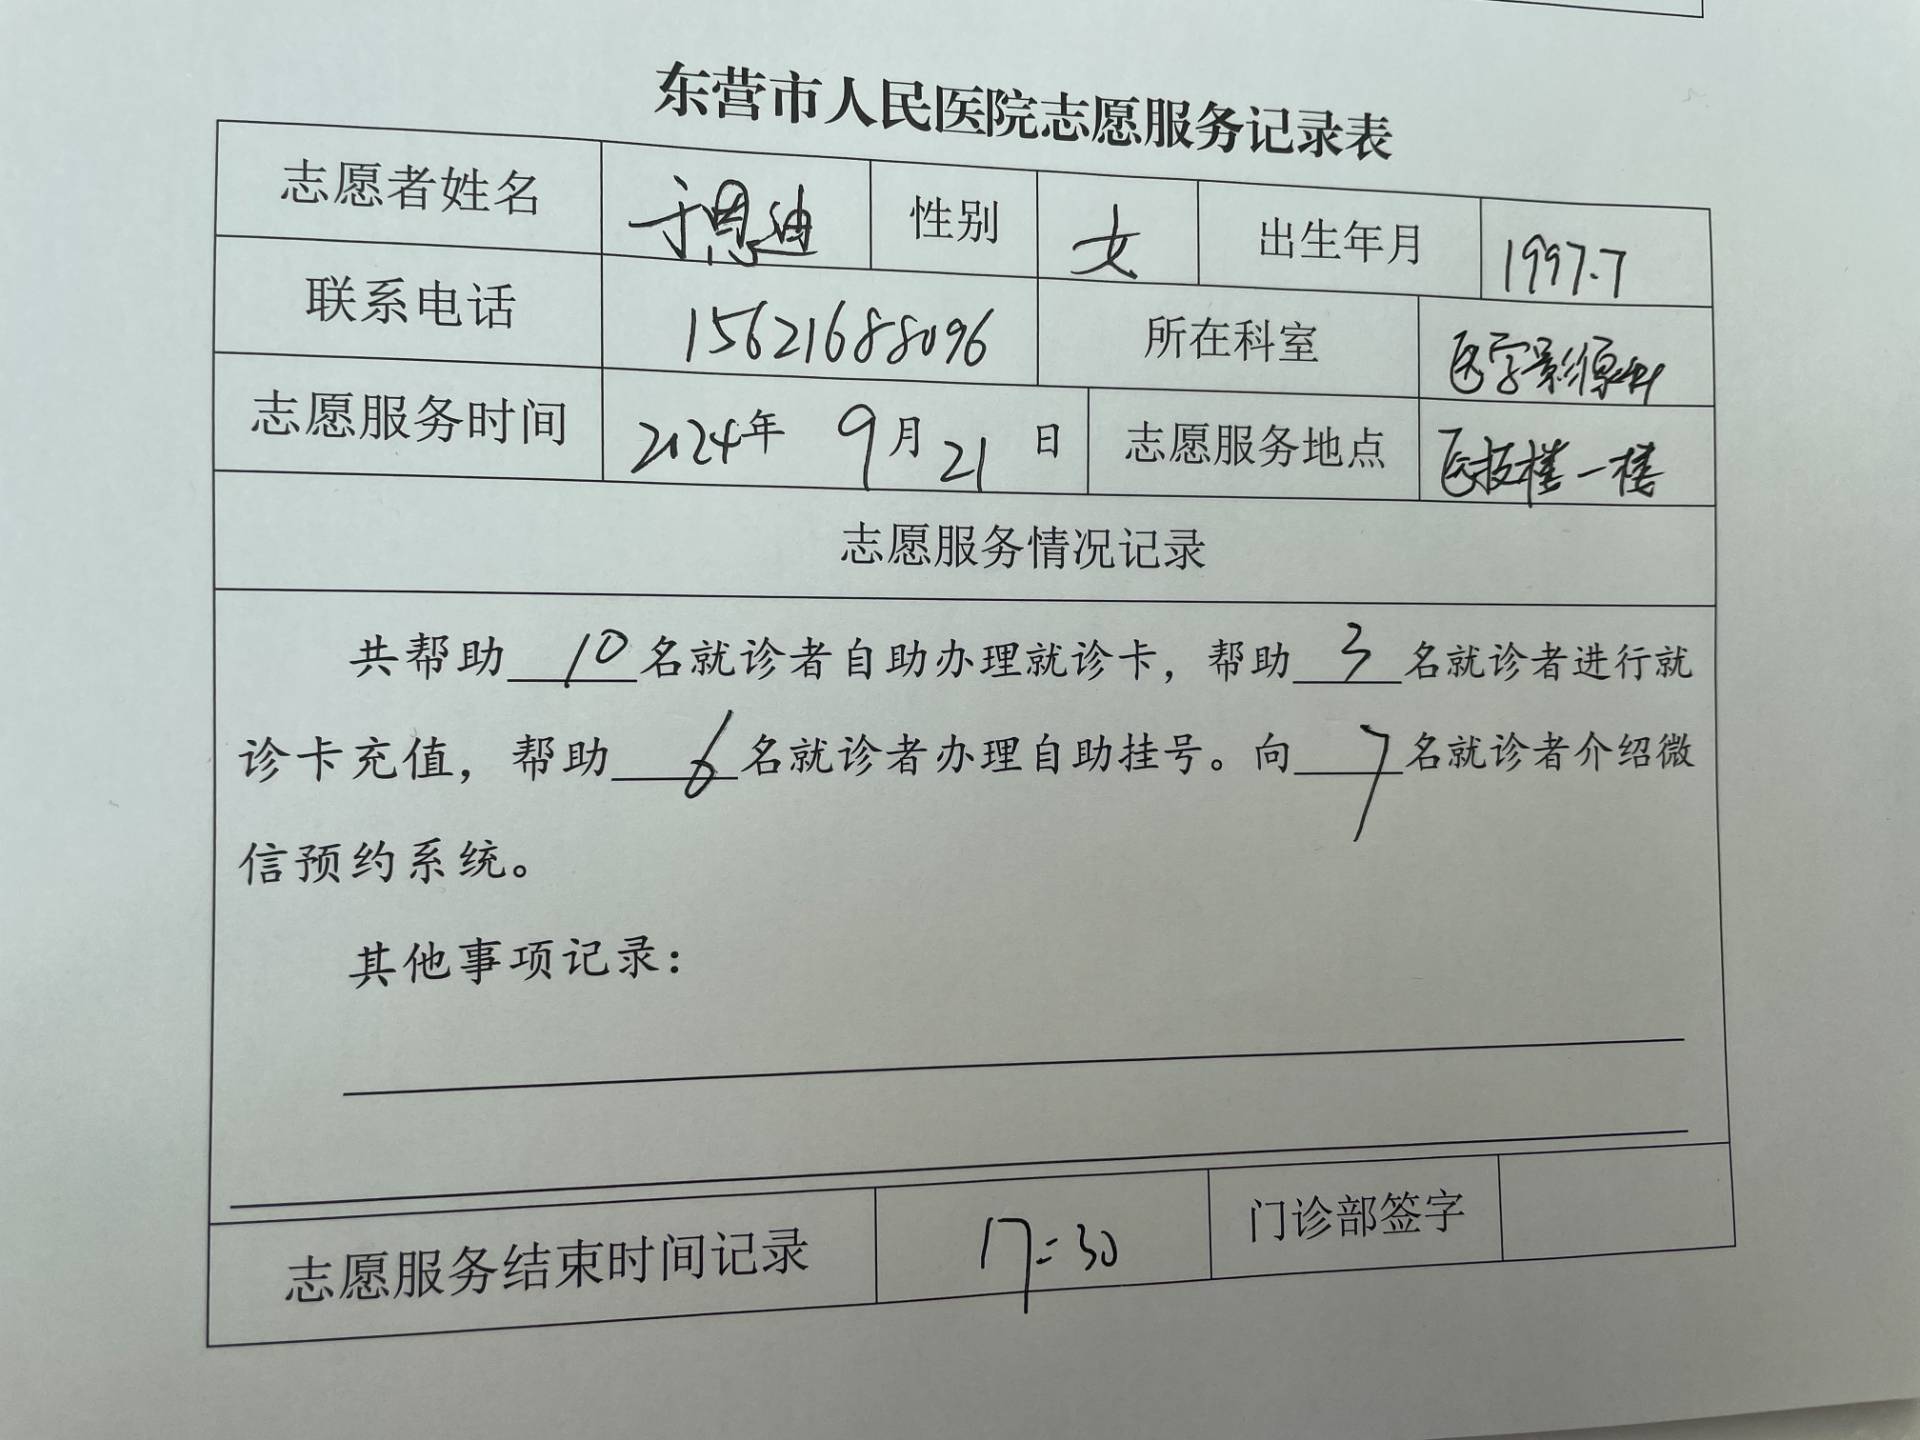 东营市人民医院志愿服务记录表
志愿者姓名 于恩迪 性别 女 出生年月 1997.7
联系电话 15621688096 所在科室 医学影像科
志愿服务时间 2024年 9月21日 志愿服务地点 医技楼一楼
志愿服务情况记录
共帮助10名就诊者自助办理就诊卡，帮助3名就诊者进行就
诊卡充值，帮助6名就诊者办理自助挂号。向7名就诊者介绍微
信预约系统。
其他事项记录：
志愿服务结束时间记录 17:30 门诊部签字